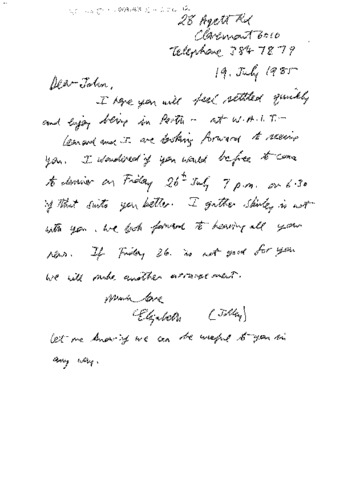 28 Agett Rd
Claremont 6010
Telephone 384 7879
19. July 1985
Dear John,
I hope you will feel settled quickly
and enjoy being in Perth - at W.A.I.T. -
and I. are looking forward to seeing
you. I wondered if you would be free to come
to dinner on Friday 26th July 7 p.m. or 6.30
if that suits you better. I gather Shirley is not
with you. We look forward to hearing all your
news. If Friday 26. is not good for you
we will make another arrangement.
much love
Elizabeth (Jolley)
Let me know if we can be useful to you in
any way.